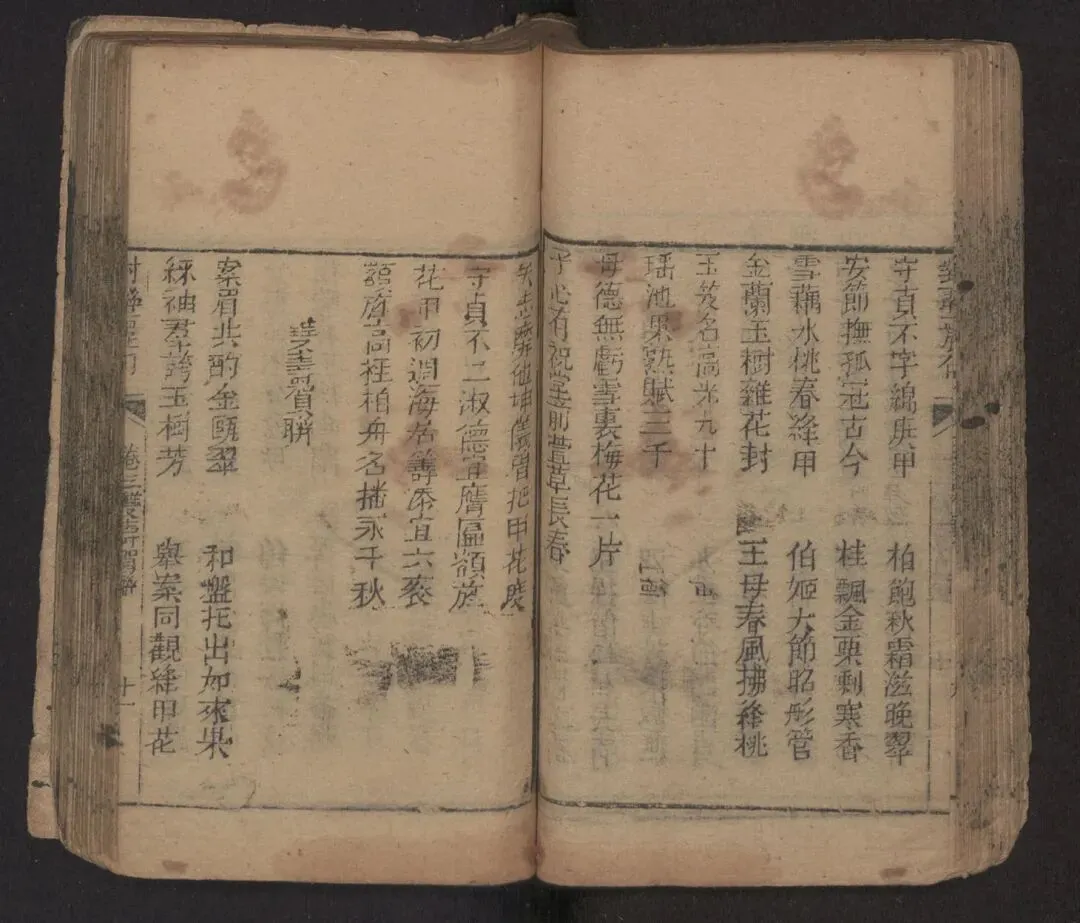 守貞不字綿庚甲
柏飽秋霜滋晚翠
安節撫孤冠古今
桂飄金粟剩寒香
雪藕水桃春絳甲
伯姬大節昭彤管
金蘭玉樹雜花封
王母春風拂絳桃
玉笈名高米九十
瑤池果熟賦三千
母德無虧雪裏梅花一片
子心有祝堂前萱草長春
守貞不二淑德宜膺匾額旌
花甲初週海居籌添宜六袠
額旌高挂柏舟名播永千秋
雙壽賀聯
案眉共酌金甌翠
和盤托出如來果
綵袖羣誇玉樹芳
舉案同觀絳甲花
卷三雙壽賀聯
十一